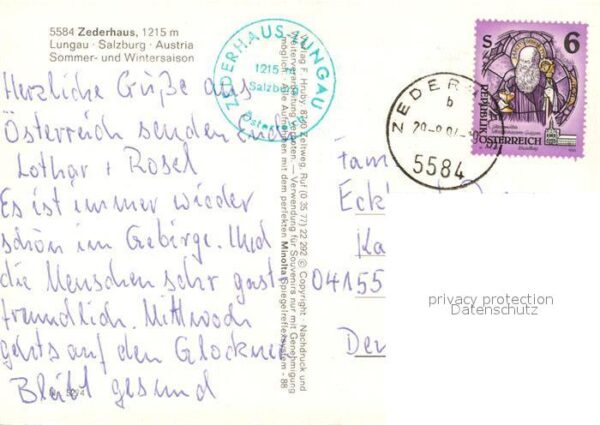 5584 Zederhaus, 1215 m
Lungau · Salzburg · Austria
Sommer- und Wintersaison
ZEDERHAUS · LUNGAU
1215 m
Salzburg
Österreich
Herzliche Grüße aus
Österreich senden Euch
Lothar + Rosel
Es ist immer wieder
schön im Gebirge. Und
die Menschen sehr gast-
freundlich. Mittwoch
gehts auf den Glockner
Bleibt gesund
Verlag F. Hruby, 8740 Zeltweg, Ruf (0 35 77) 22 292 © Copyright · Nachdruck und
Weiterverarbeitung verboten. — Verwendung für Souvenirs nur mit Genehmigung
möglich. — Alle Aufnahmen mit dem perfekten Minolta Spiegelreflexsystem - 88
S 6
REPUBLIK
ÖSTERREICH
ZEDER
b
5584
Fam
Eck
Ka
04155
Der
privacy protection
Datenschutz